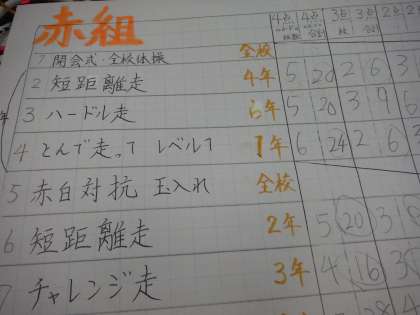 赤組
4点 4点 3点 3点 2
枚数 合計 枚 合計
1 開会式・全校体操 全校
2 短距離走 4年 5 20 2 6 3
3 ハードル走 6年 5 20 3 9 6
4 とんで走って レベル1 1年 6 24 2 6 3
5 赤白対抗 玉入れ 全校
6 短距離走 2年 5 20 3
7 チャレンジ走 3年 4 16 3